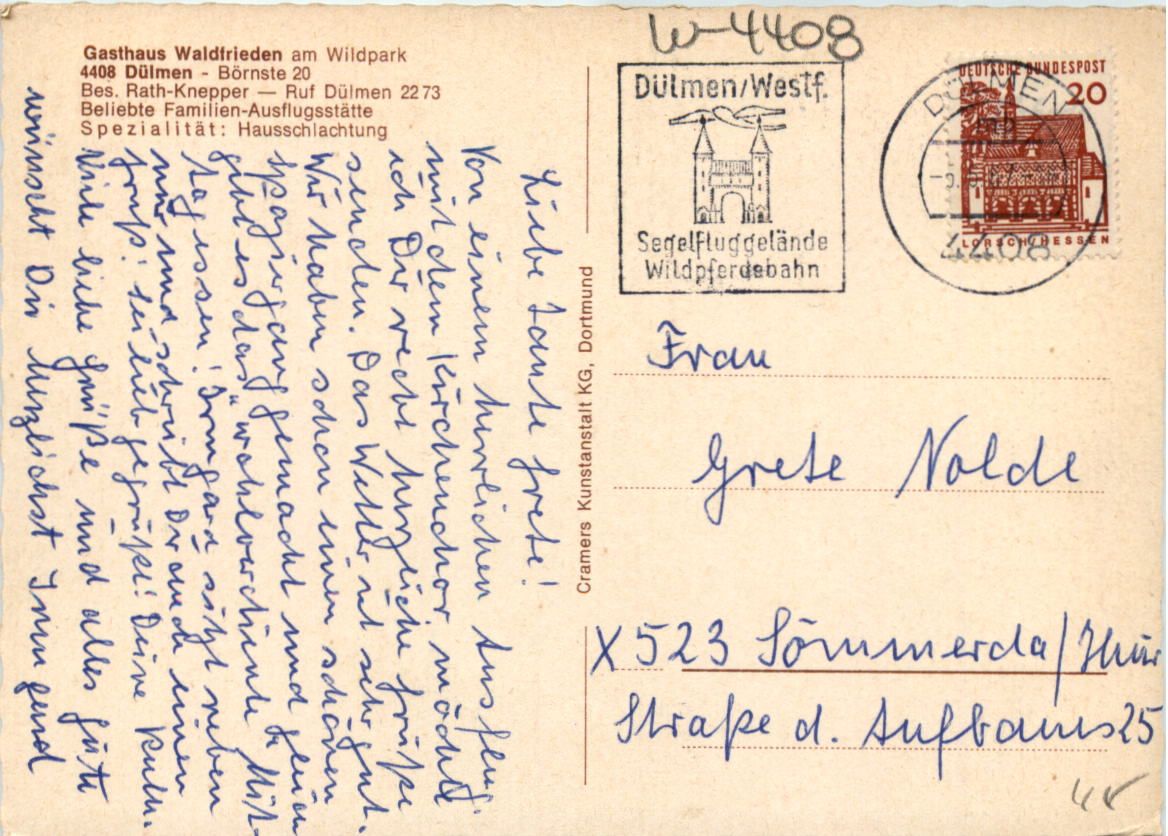 Gasthaus Waldfrieden am Wildpark
4408 Dülmen - Börnste 20
Bes. Rath-Knepper — Ruf Dülmen 22 73
Beliebte Familien-Ausflugsstätte
Spezialität: Hausschlachtung
Liebe Tante Grete!
Von einem herrlichen Ausflug
mit dem Kirchenchor möchte
ich Dir recht herzliche Grüße
senden. Das Wetter ist sehr gut.
Wir haben schon einen schönen
Spaziergang gemacht und genau
gibt es das "wohlverdiente Mit-
tagessen! Irmgard sitzt neben
mir und schreibt Dir auch einen
Gruß! Sei lieb gegrüßt! Deine Ruth.
Viele liebe Grüße und alles Gute
wünscht Dir herzlichst Irmgard
Cramers Kunstanstalt KG, Dortmund
W-4408
Dülmen/Westf.
Segelfluggelände
Wildpferdebahn
DÜLMEN
mb
4408
DEUTSCHE BUNDESPOST
20
LORSCH/HESSEN
Frau
Grete Nolde
X 523 Sömmerda/Thür
Straße d. Aufbaus 25